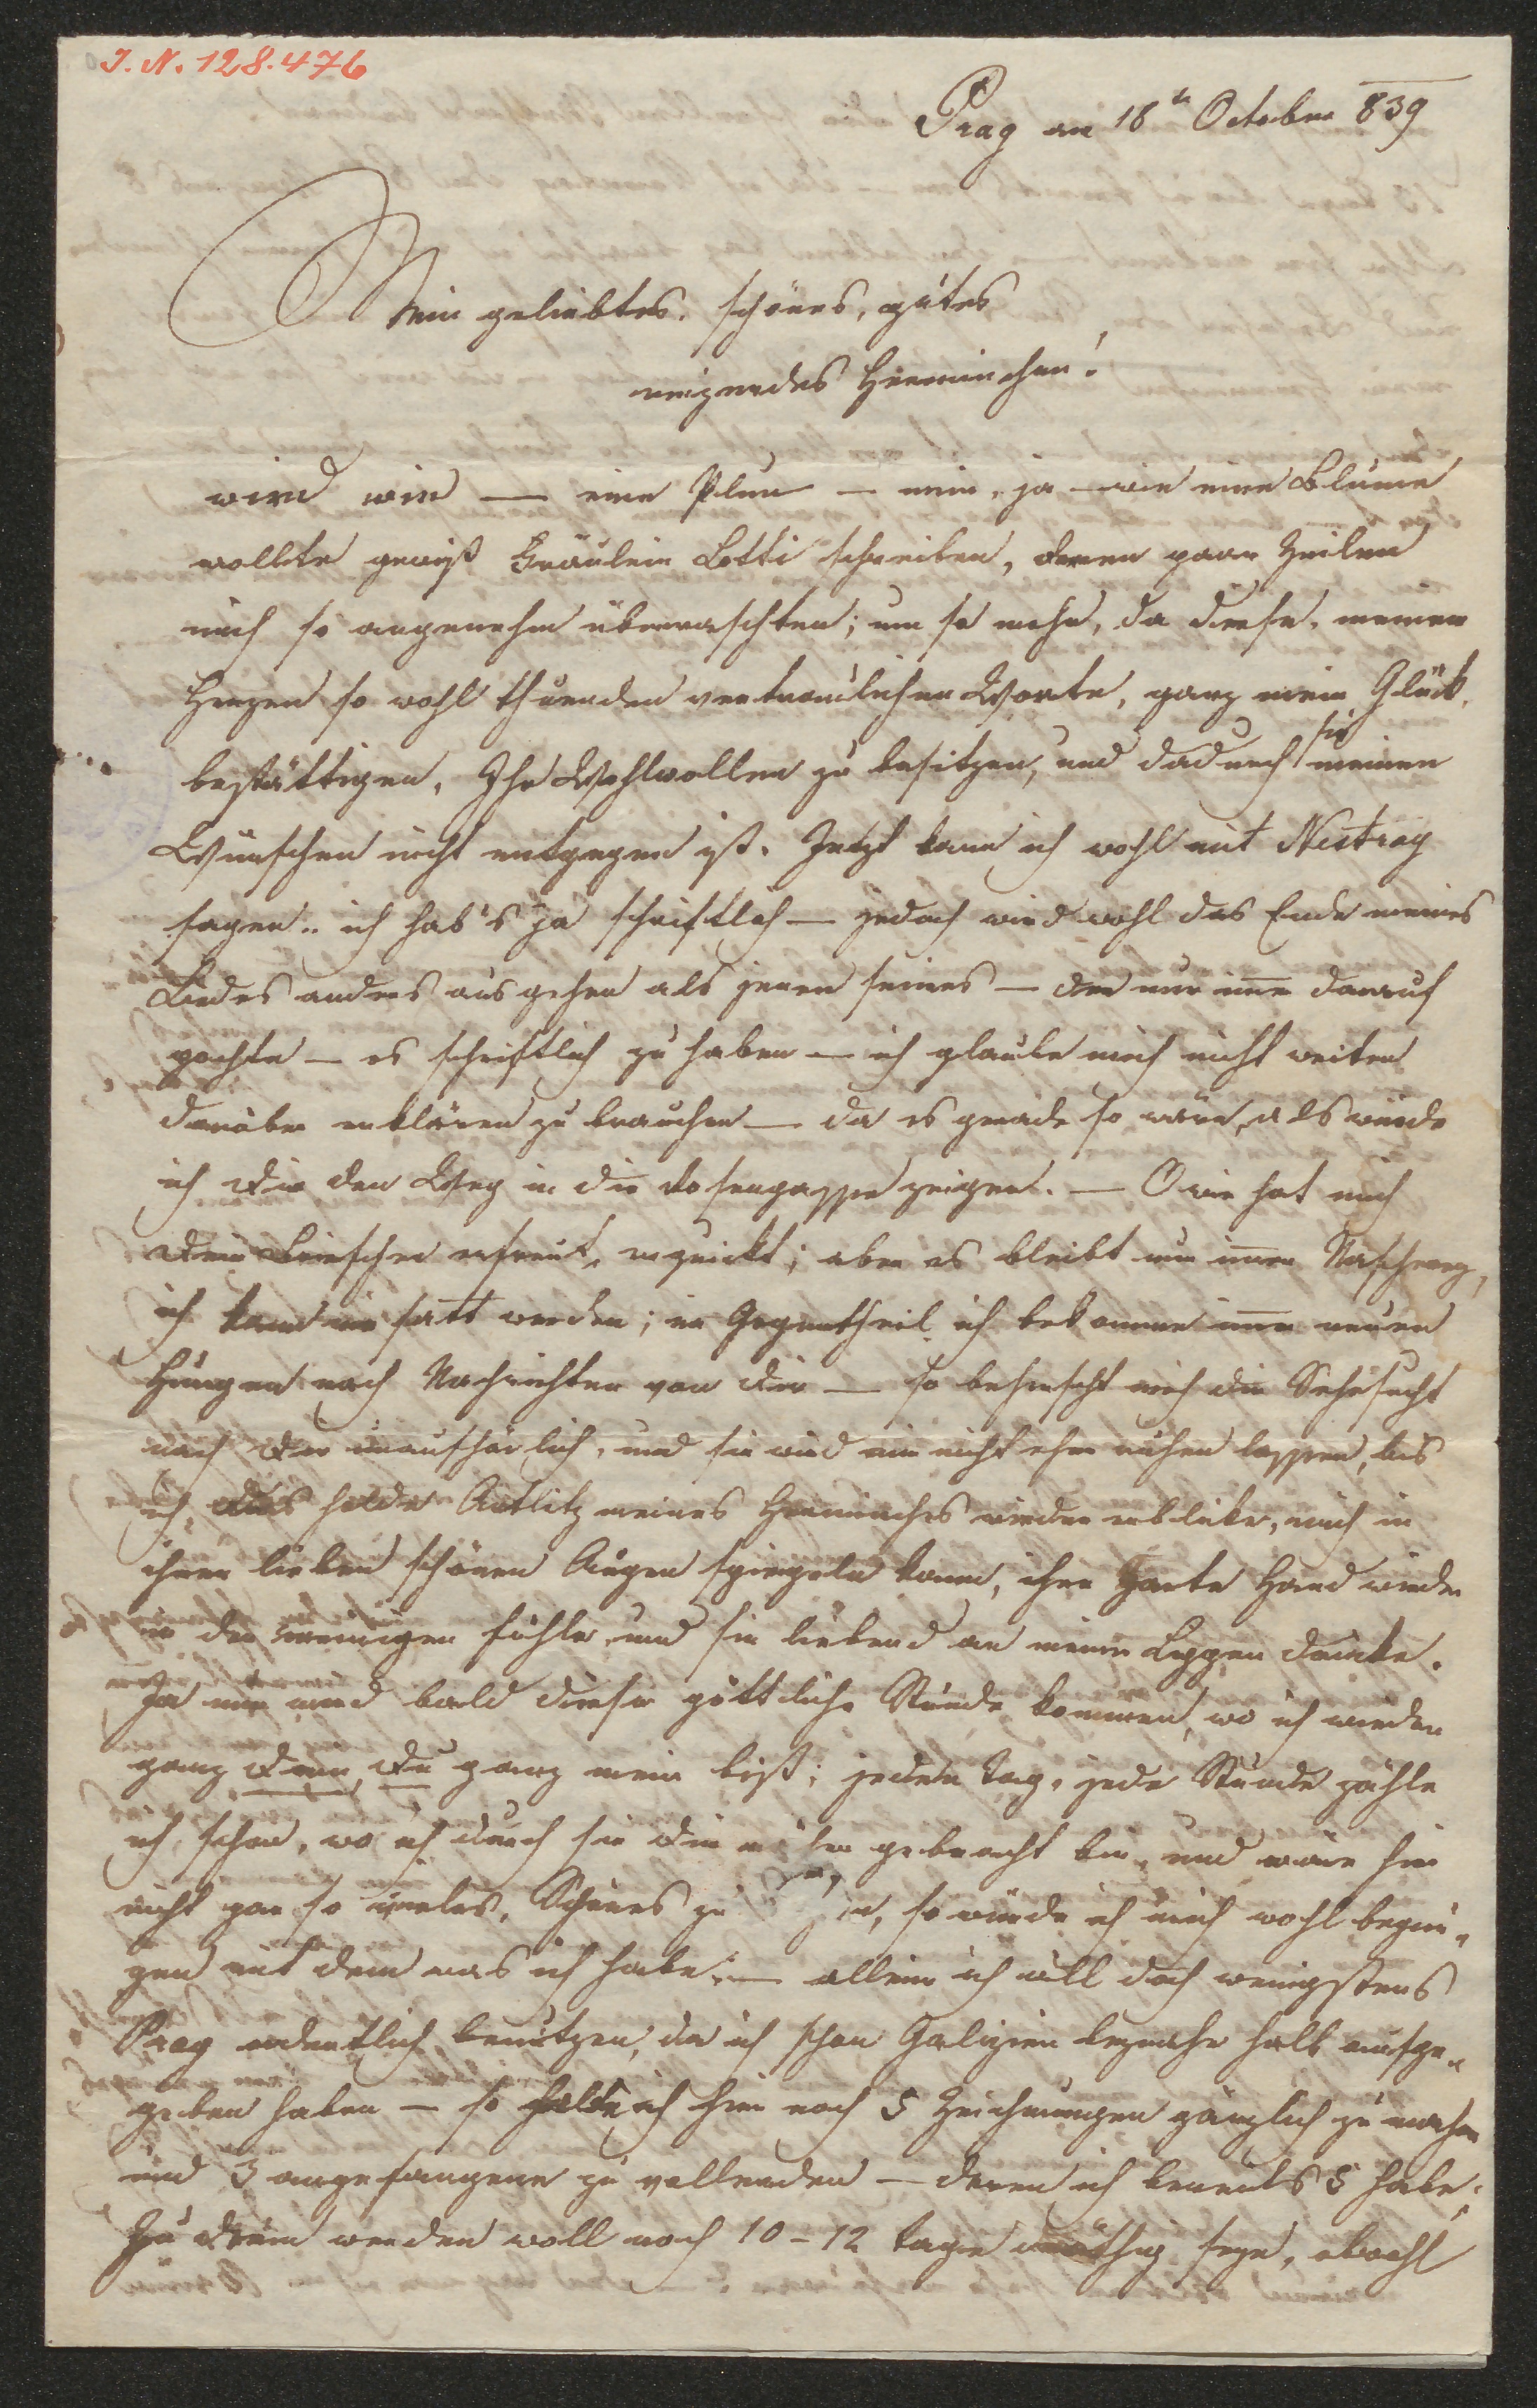 I. N. 128.476
Prag am 18t October 839
Mein geliebtes, schönes, gutes
reizendes Herminchen!
wird wie — eine Plum — nein, ja — wie eine Blume
wollte gewiß Fräulein Lotti schreiben, deren paar Zeilen
mich so angenehm überraschten; um so mehr, da diese, meinem
Herzen so wohl thuenden vertraulichen Worte, ganz mein Glück
bestättigen, Ihr Wohlwollen zu besitzen, und dadurch sie meinen
Wünschen nicht entgegen ist. Jetzt kann ich wohl mit Nestroy
sagen „ ich hab's ja schriftlich — jedoch wird wohl das Ende meines
Liedes anders ausgehen als jenen seines — der nur imer darauf
pochte — es schriftlich zu haben — ich glaube mich nicht weiter
darüber erklären zu brauchen — da es gerade so wäre, als würde
ich Dir den Weg in die Dosengasse zeigen. — O wie hat mich
Dein Briefchen erfreut, erquickt; aber es bleibt nur immer Nascherey,
ich kann nie satt werden; im Gegentheil ich bekomme imer neuen
Hunger nach Nachrichten von Dir — so beherscht mich die Sehnsucht
nach Dir unaufhörlich, und sie wird mir nicht eher ruhen lassen, bis
ich das holde Antlitz meines Herminchens wieder erblicke, mich in
ihren lieben schönen Augen spiegeln kann, ihre Zarte Hand wieder
in der meinigen fühle, und sie liebend an meine Lippen drücke.
Ja nur wird bald diese göttliche Stunde kommen, wo ich wieder
ganz Dein, Du ganz mein bist; jeden Tag, jede Stunde zähle
ich schon, wo ich durch sie Dir näher gebracht bin, und wäre hier
nicht gar so vieles, Schönes zu, so würde ich mich wohl begnü„
gen mit dem was ich habe; — allein ich will doch wenigstens
Prag ordentlich benützen, da ich schon Galizien beynahe halb aufge„
geben haben — so habe ich hier noch 5 Zeichnungen gänzlich zu machen
und 3 angefangene zu vollenden — deren ich bereits 5 habe;
Zu diesen werden woll noch 10 – 12 Tage nöthig seyn, obwohl